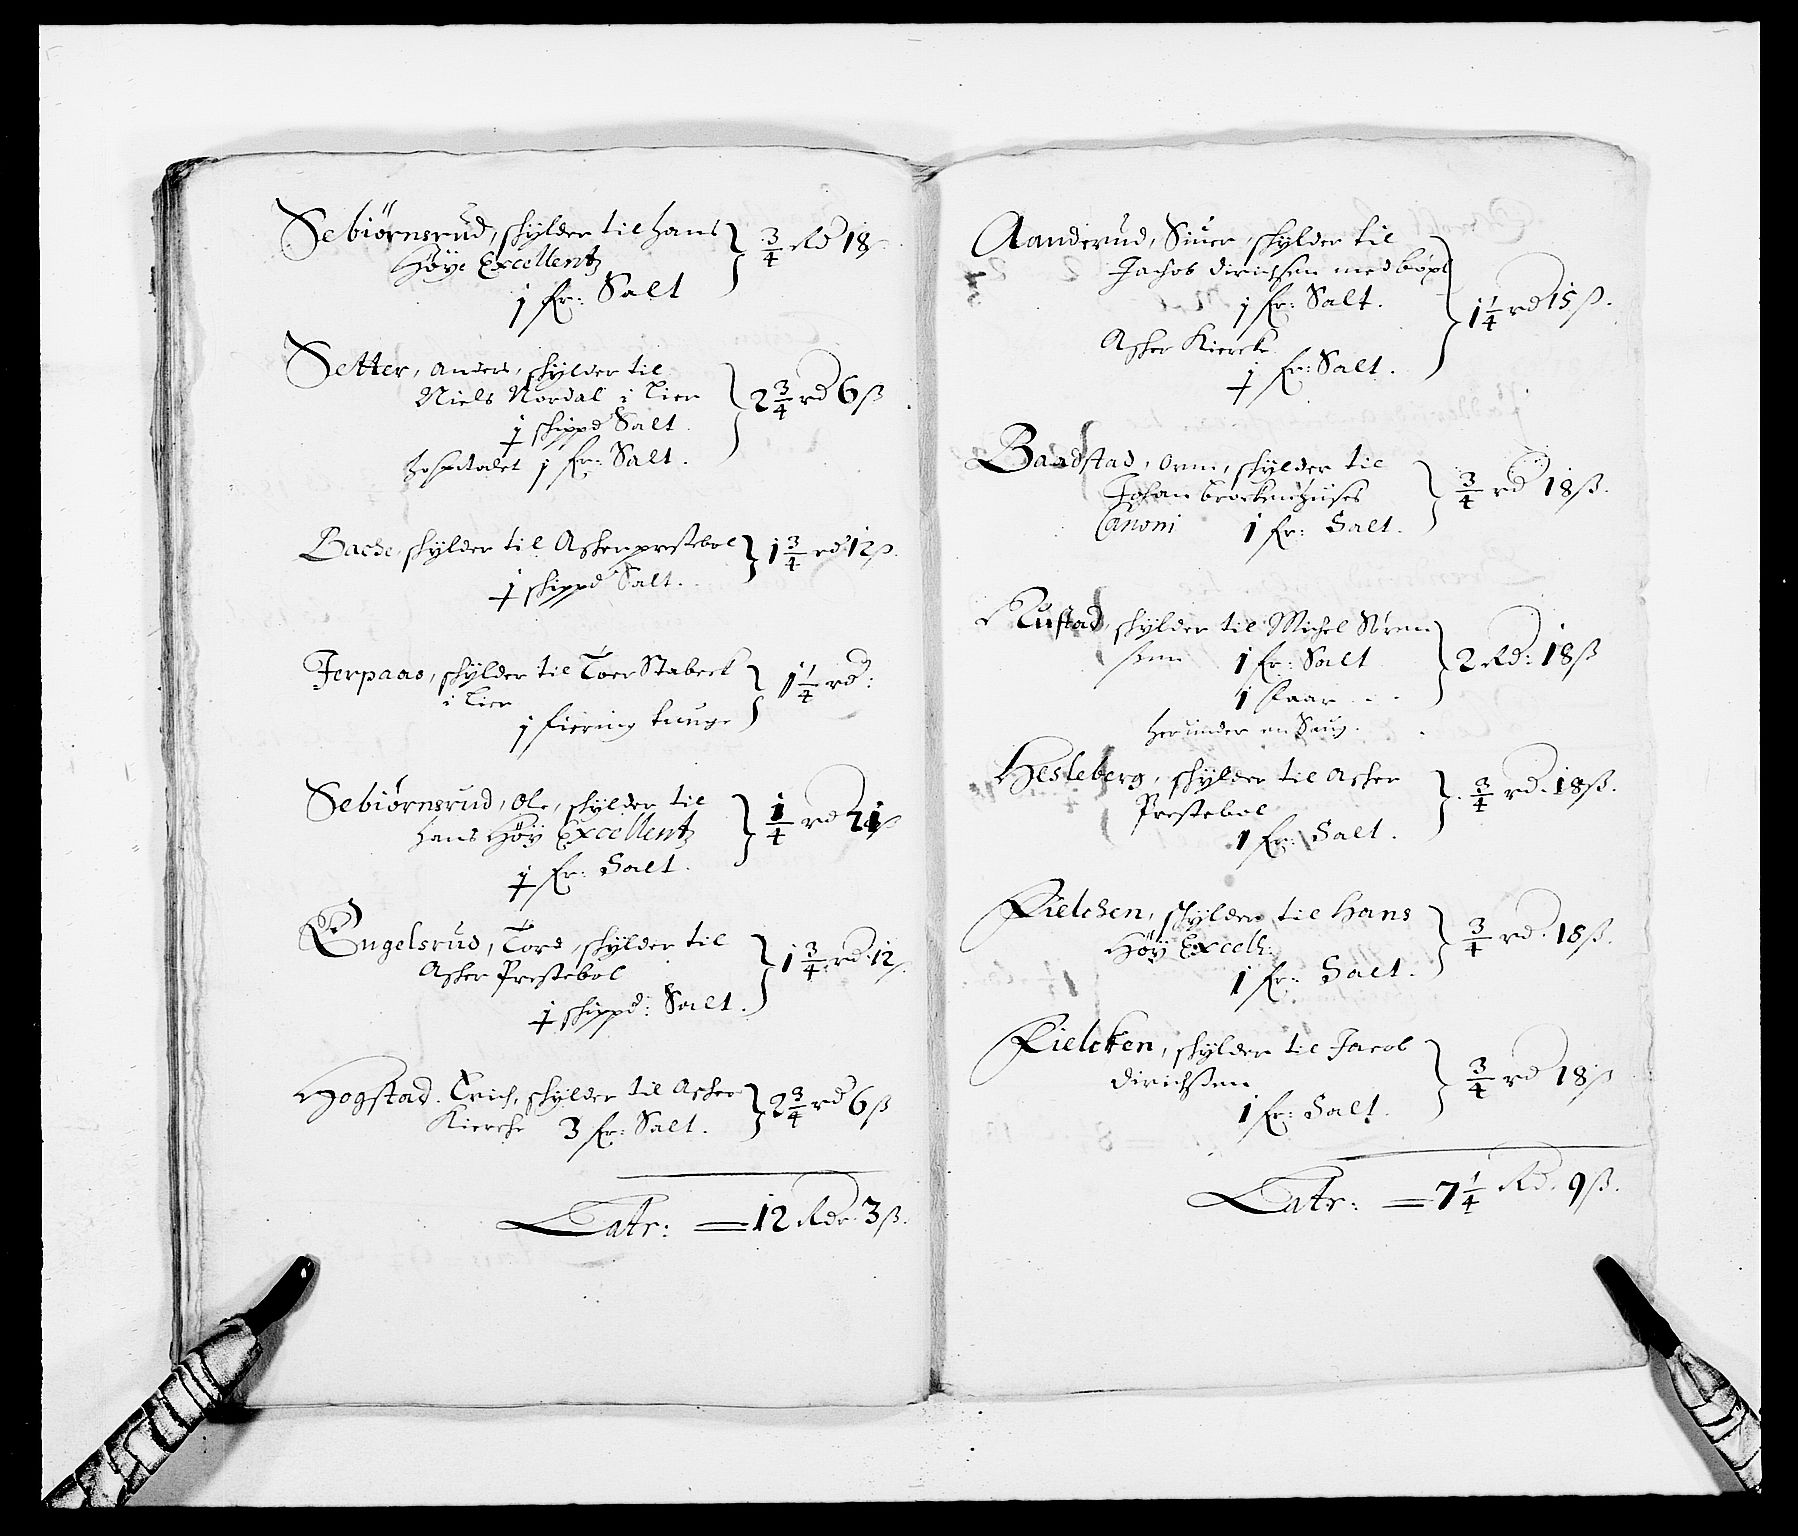 Sebiørnsrud, skylder til Hans
Høye Excellentz
j fr: Salt
3/4 Rd 18
Setter, Anders, skylder til
Niels Nordal i Lier
j skippd Salt.
Hospitalet j fr: Salt.
2 3/4 rd 6 ß
Bache, skylder til Asker prestebol
j skippd Salt.
1 3/4 rd 12 ß.
Jerpaas, skylder til Toer Stabeck
i Lier
j fiering tunge
1 1/4 rd:
Sebiørnsrud, Ole, skylder til
Hans Høy Excellentz
j fr: Salt.
1/4 rd 21 ß
Engelsrud, Tord, skylder til
Asker Prestebol
j skippd: Salt.
1 3/4 rd. 12 ß.
Hogstad. Erich, skylder til Asker
Kierche 3 fr: Salt.
2 3/4 rd 6 ß
Latr: = 12 Rdr. 3 ß.
Aanderud, Siuer, skylder til
Jachob Dirichsen med bøxl
j fr: Salt.
Asker Kiercke
j fr: Salt.
1 1/4 rd 15 ß.
Baadstad, Orm, skylder til
Johan Brockenhuses
Canoni 1 fr: Salt.
3/4 rd 18 ß.
Rustad, skylder til Michel Søren
sen 1 fr: Salt
1 faar
Herunder en Saug.
2 Rd: 18 ß
Hesleberg, skylder til Asker
Prestebol
1 fr: Salt.
3/4 rd. 18 ß.
Fielchen, skylder til Hans
Høy Excell:
1 fr: Salt.
3/4 rd. 18 ß.
Fielcken, skylder til Jacob
Dirichsen
1 fr: Salt.
3/4 rd 18 ß
Latr: = 7 1/4 Rd. 9 ß.